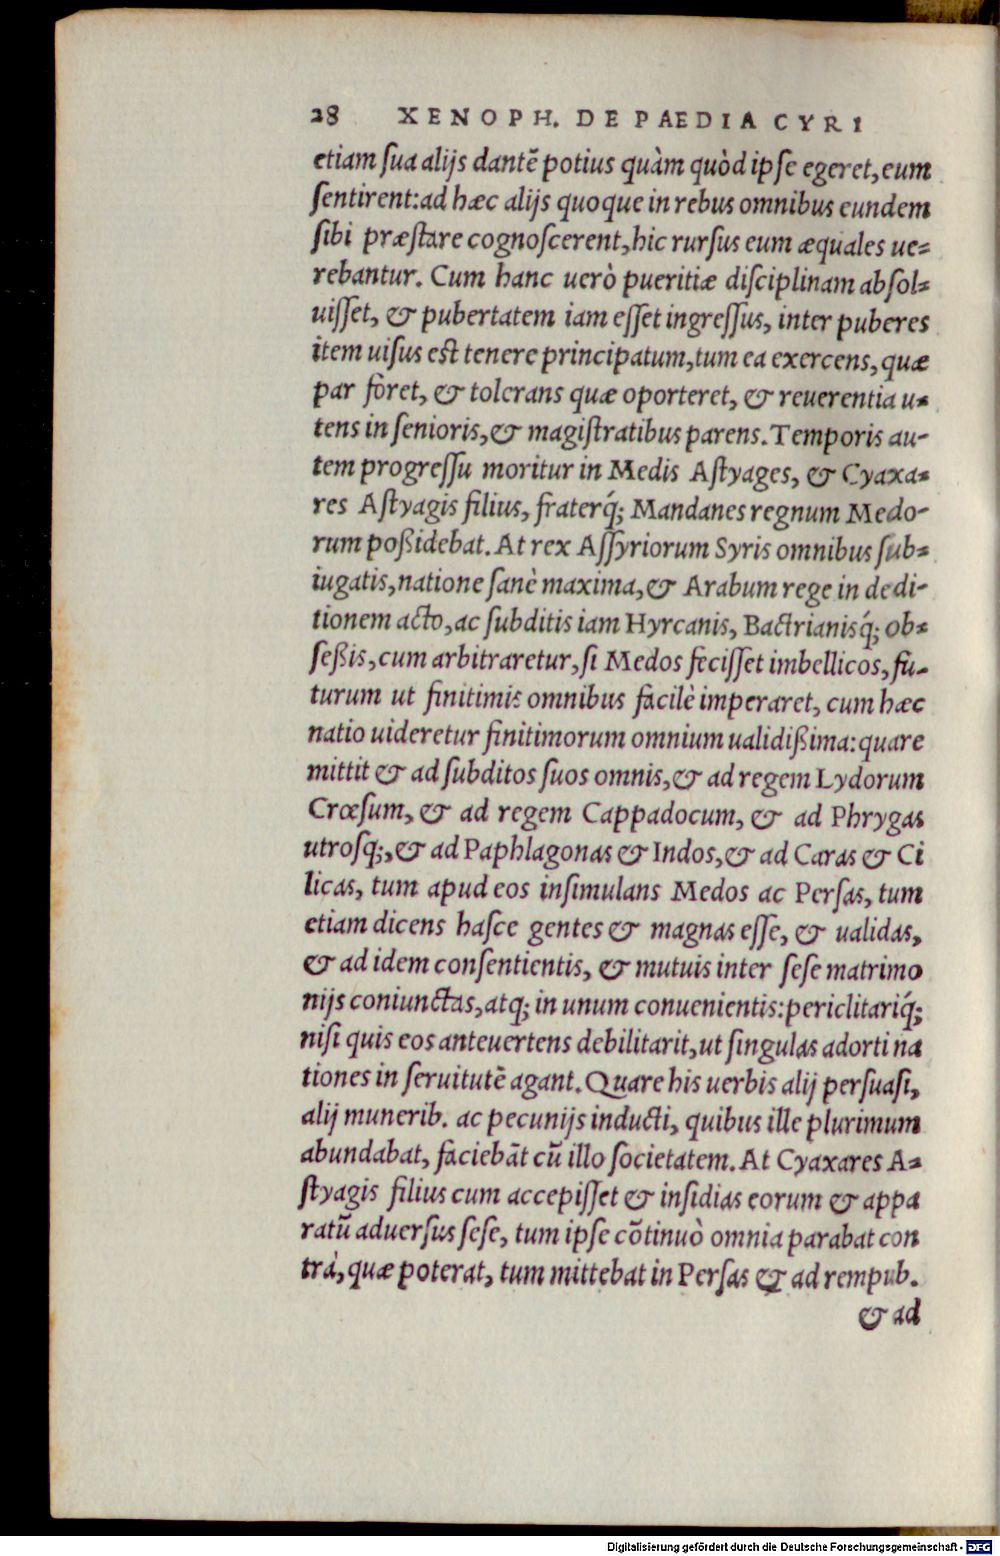 28 XENOPH. DE PAEDIA CYRI
etiam ſua alijs dantē potius quàm quòd ipſe egeret, eum
ſentirent: ad hæc alijs quoque in rebus omnibus eundem
ſibi præſtare cognoſcerent, hic rurſus eum æquales ue-
rebantur. Cum hanc uerò pueritiæ diſciplinam abſol-
uiſſet, & pubertatem iam eſſet ingreſſus, inter puberes
item uiſus est tenere principatum, tum ea exercens, quæ
par foret, & tolerans quæ oporteret, & reuerentia u-
tens in ſenioris, & magiſtratibus parens. Temporis au-
tem progreſſu moritur in Medis Aſtyages, & Cyaxa-
res Aſtyagis filius, fraterq́; Mandanes regnum Medo-
rum poßidebat. At rex Aſſyriorum Syris omnibus ſub-
iugatis, natione ſanè maxima, & Arabum rege in dedi-
tionem acto, ac ſubditis iam Hyrcanis, Bactrianisq́; ob-
ſeßis, cum arbitraretur, ſi Medos feciſſet imbellicos, fu-
turum ut finitimis omnibus facilè imperaret, cum hæc
natio uideretur finitimorum omnium ualidißima: quare
mittit & ad ſubditos ſuos omnis, & ad regem Lydorum
Crœſum, & ad regem Cappadocum, & ad Phrygas
utroſq;, & ad Paphlagonas & Indos, & ad Caras & Ci
licas, tum apud eos inſimulans Medos ac Perſas, tum
etiam dicens haſce gentes & magnas eſſe, & ualidas,
& ad idem conſentientis, & mutuis inter ſeſe matrimo
nijs coniunctas, atq; in unum conuenientis: periclitariq́;
niſi quis eos anteuertens debilitarit, ut ſingulas adorti na
tiones in ſeruitutē agant. Quare his uerbis alij perſuaſi,
alij munerib. ac pecunijs inducti, quibus ille plurimum
abundabat, faciebāt cū illo ſocietatem. At Cyaxares A-
ſtyagis filius cum accepiſſet & inſidias eorum & appa
ratū aduerſus ſeſe, tum ipſe cōtinuò omnia parabat con
trà, quæ poterat, tum mittebat in Perſas & ad rempub.
& ad
Digitalisierung gefördert durch die Deutsche Forschungsgemeinschaft - DFG